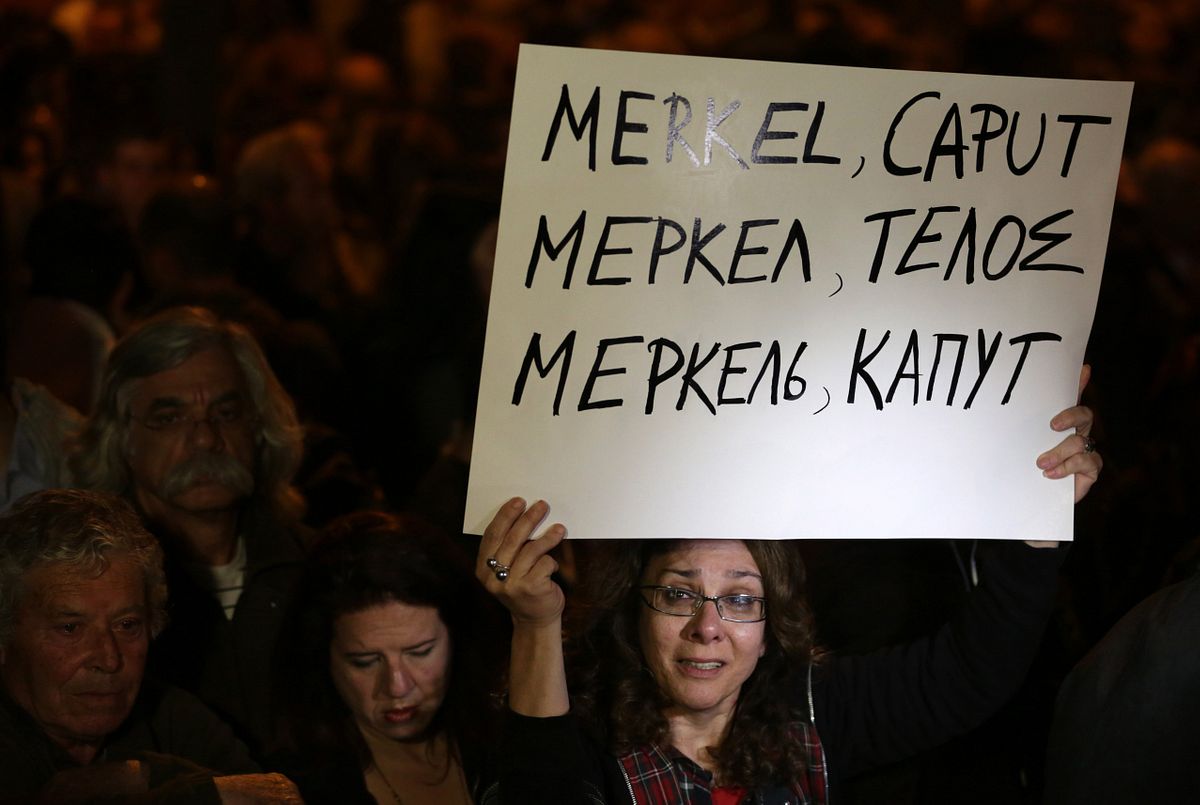 MERKEL, CAPUT
ΜΕΡΚΕΛ, ΤΕΛΟΣ
МЕРКЕЛЬ, КАПУТ